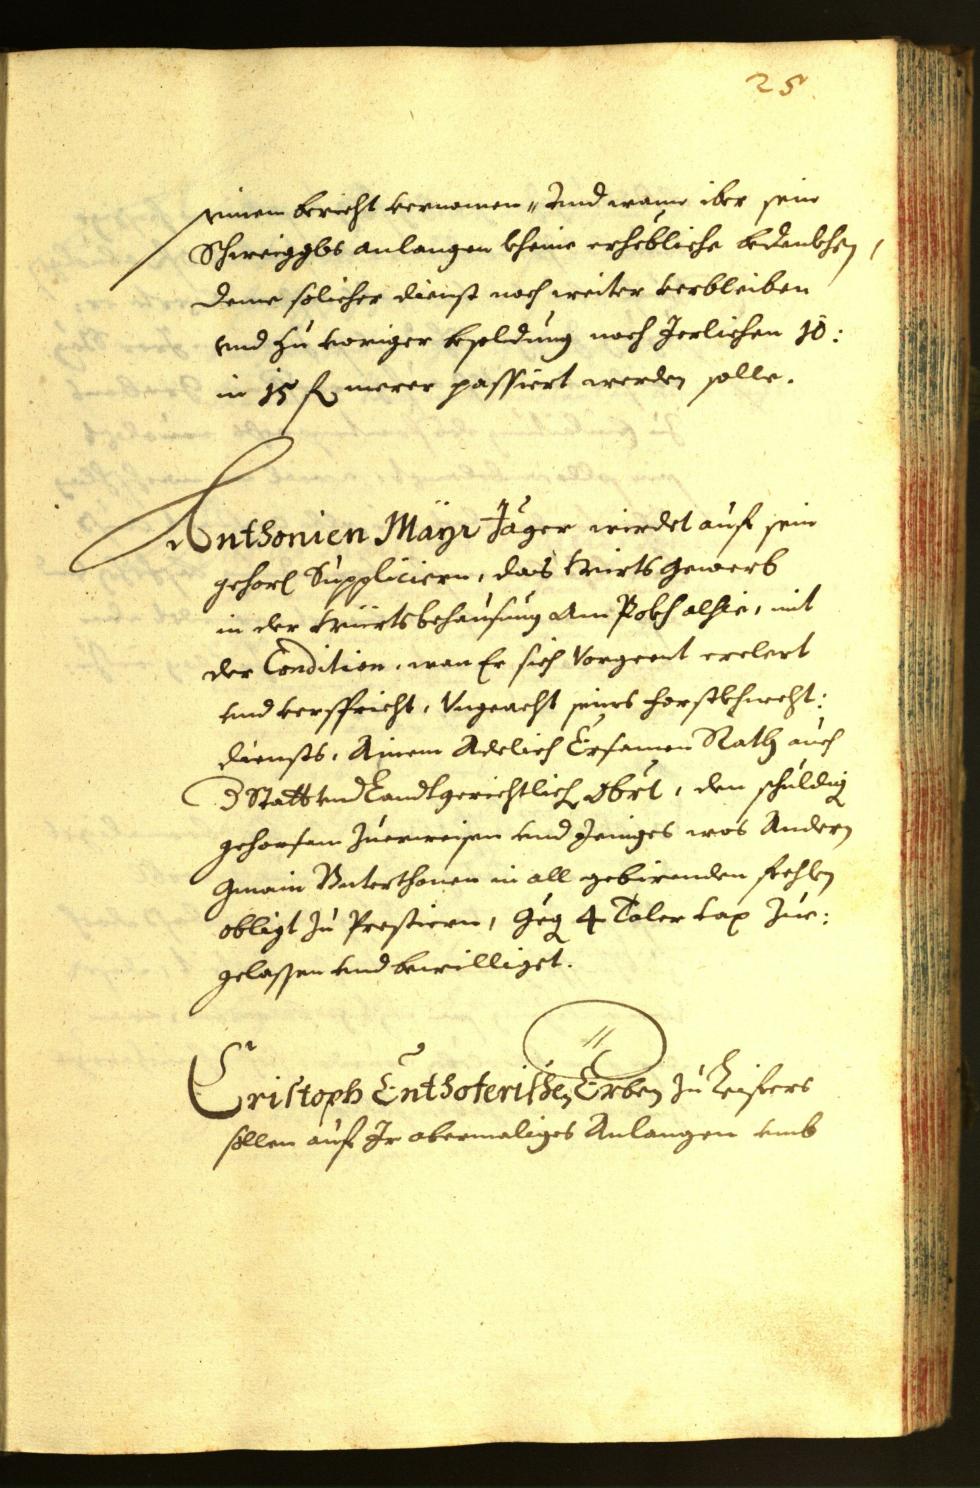 25
einem bericht vernomen, und wann iber sein
Schweigghls anlangen kheine erhebliche bedenkhen,
deme solicher dienst noch weiter verbleiben
und zu voriger besoldung noch Jerlichen 10:
in 15 f merer passiert werden solle.
Anthonien Mäyr Jäger wirdet auf sein
gehorl Suppliciern, das Wirts Gewerb
in der Würtsbehausung am Pokh alhie, mit
der Condition, wan Er sich Vorgeent erclert
und verspricht, Ungeacht seines forstkhnecht:
diensts, Ainem Adelich Ersamen Rath auch
d Statt und Landtgerichtlich Obrt, den schuldig
gehorsam zuerweisen und Jeniges was Andern
Gmain Unterthonen in all gebirenden fählen
obligt zu Prestiern, Geg 4 Taler tax zue:
gelassen und bewilliget.
Cristoph Enthoferischen Erben zu Leifers
sollen auf Ir abermaliges Anlangen umb